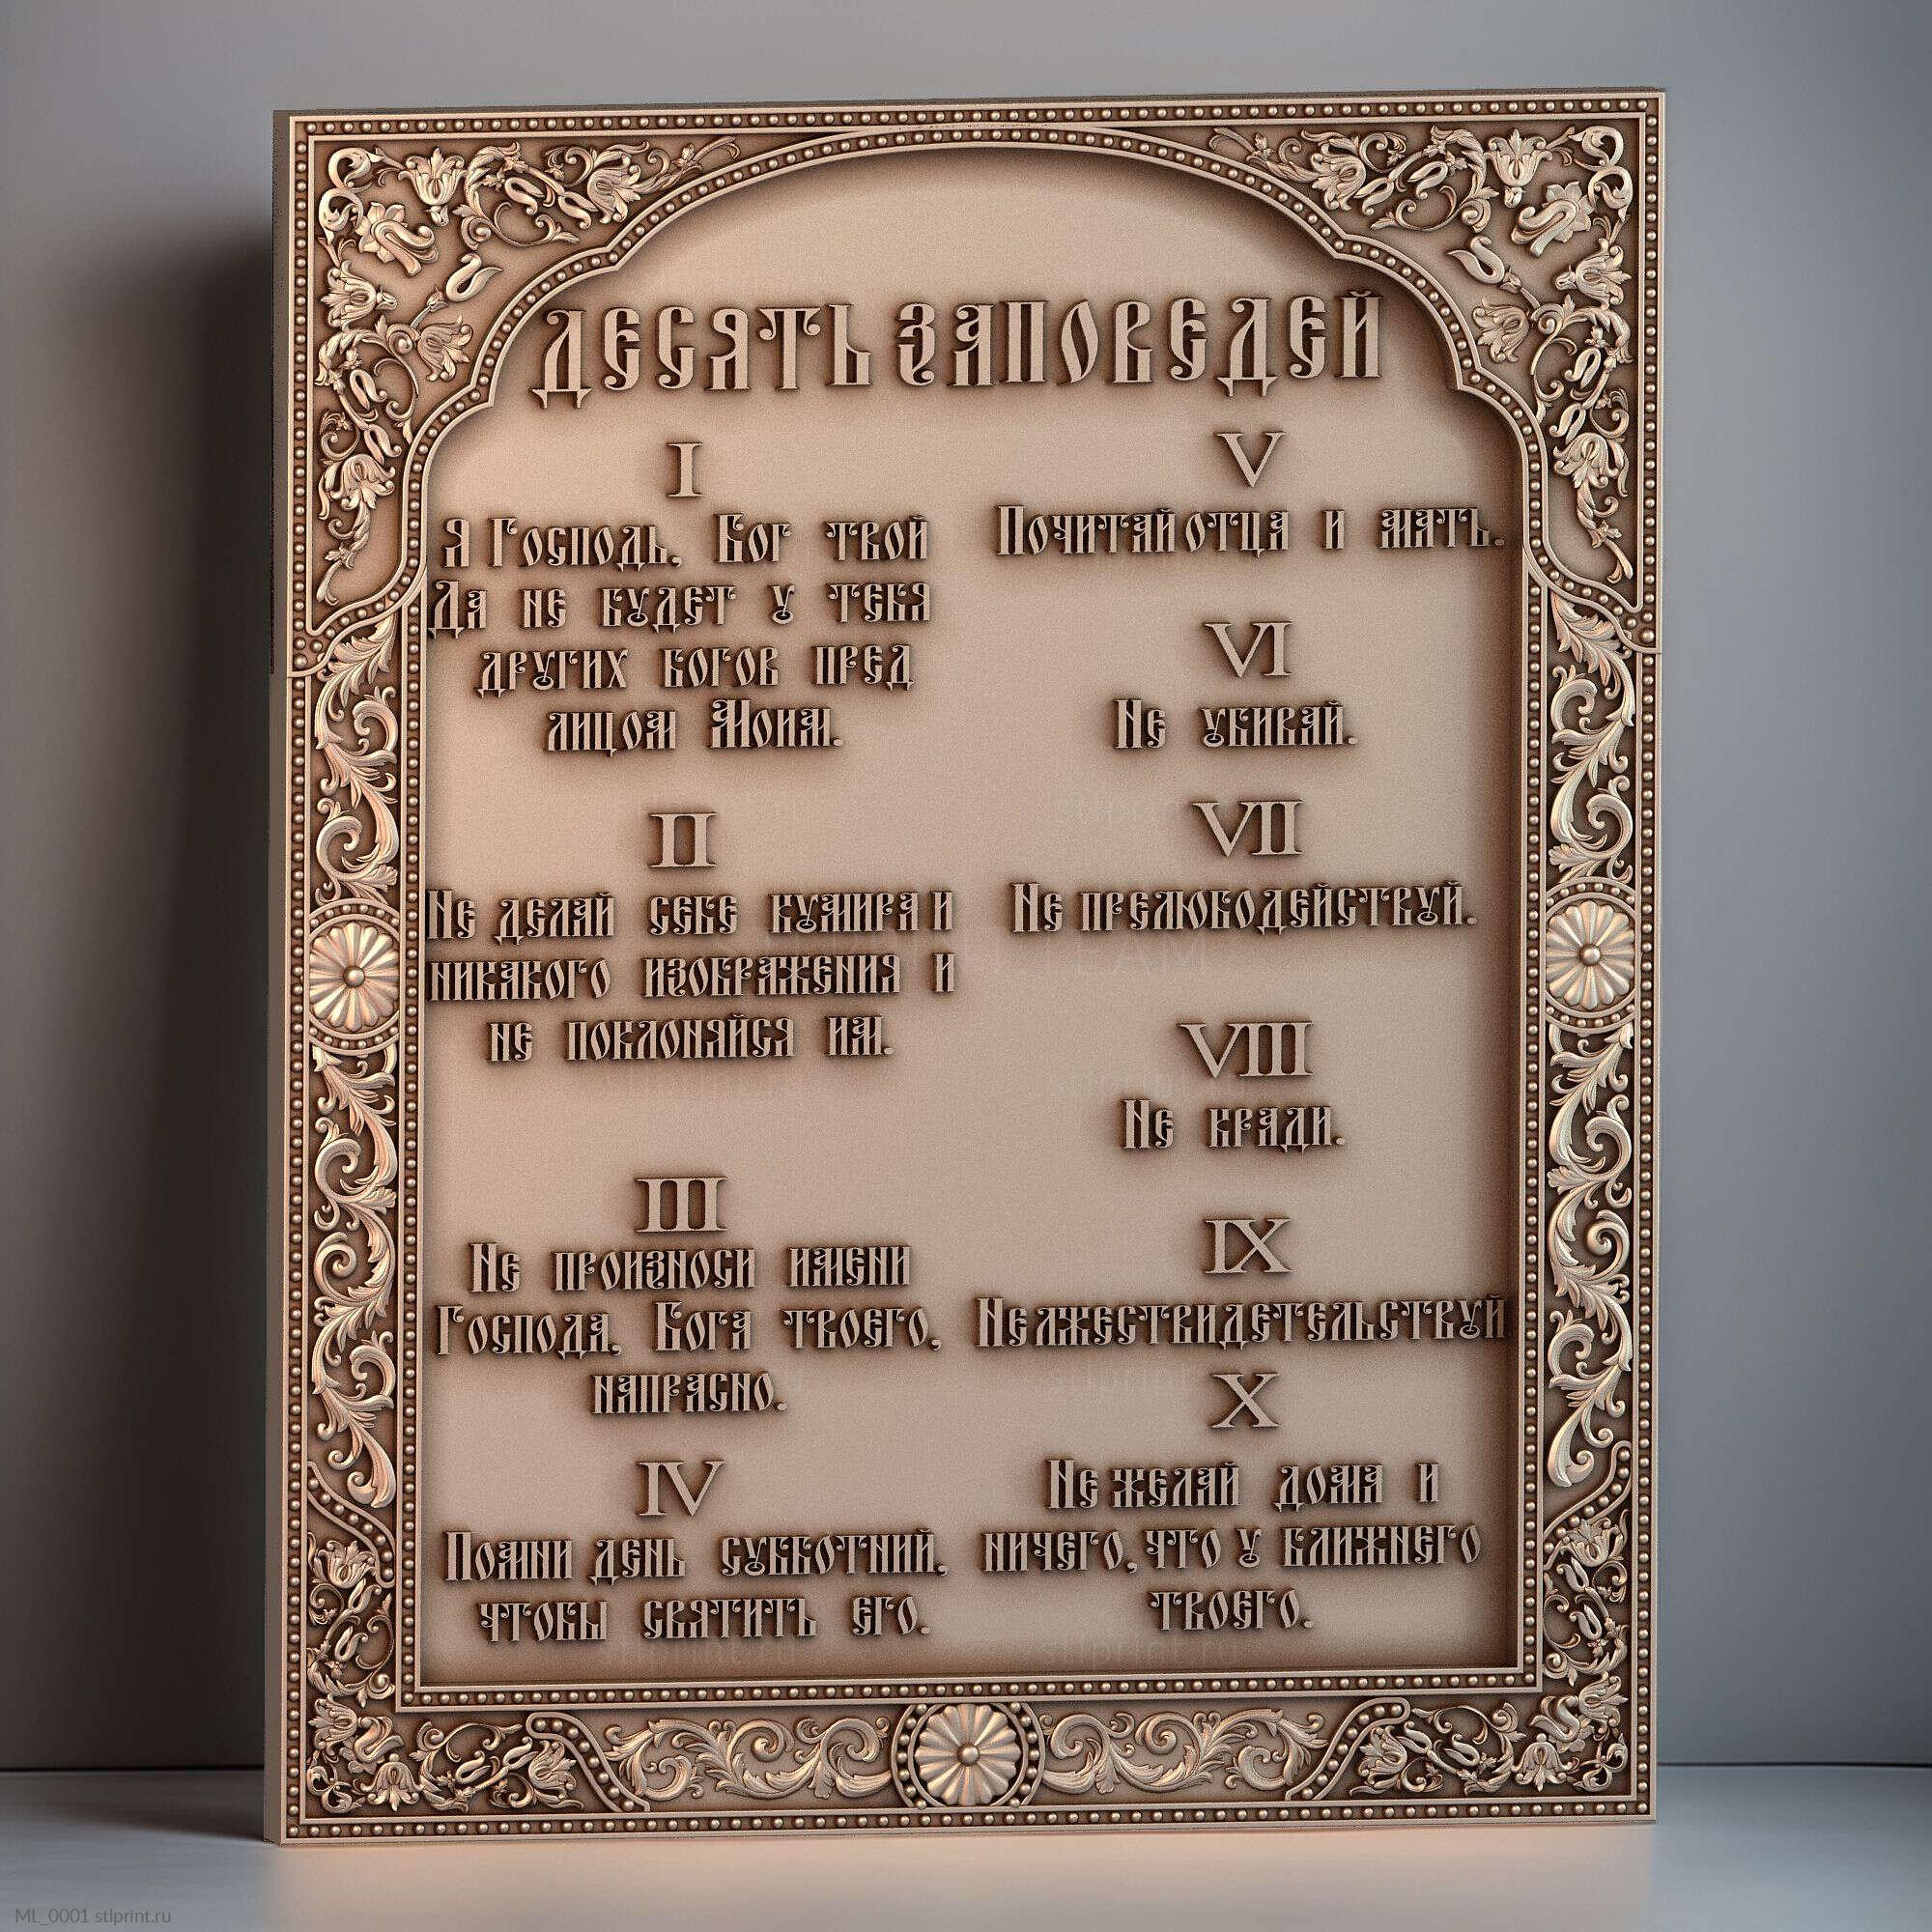 ДЕСЯТЬ ЗАПОВЕДЕЙ
I
Я Господь, Бог твой
Да не будет у тебя
других богов пред
лицом Моим.
II
Не делай себе кумира и
никакого изображения и
не поклоняйся им.
III
Не произноси имени
Господа, Бога твоего,
напрасно.
IV
Помни день субботний,
чтобы святить его.
V
Почитай отца и мать.
VI
Не убивай.
VII
Не прелюбодействуй.
VIII
Не кради.
IX
Не лжествидетельствуй
X
Не желай дома и
ничего, что у ближнего
твоего.
ML_0001 stlprint.ru